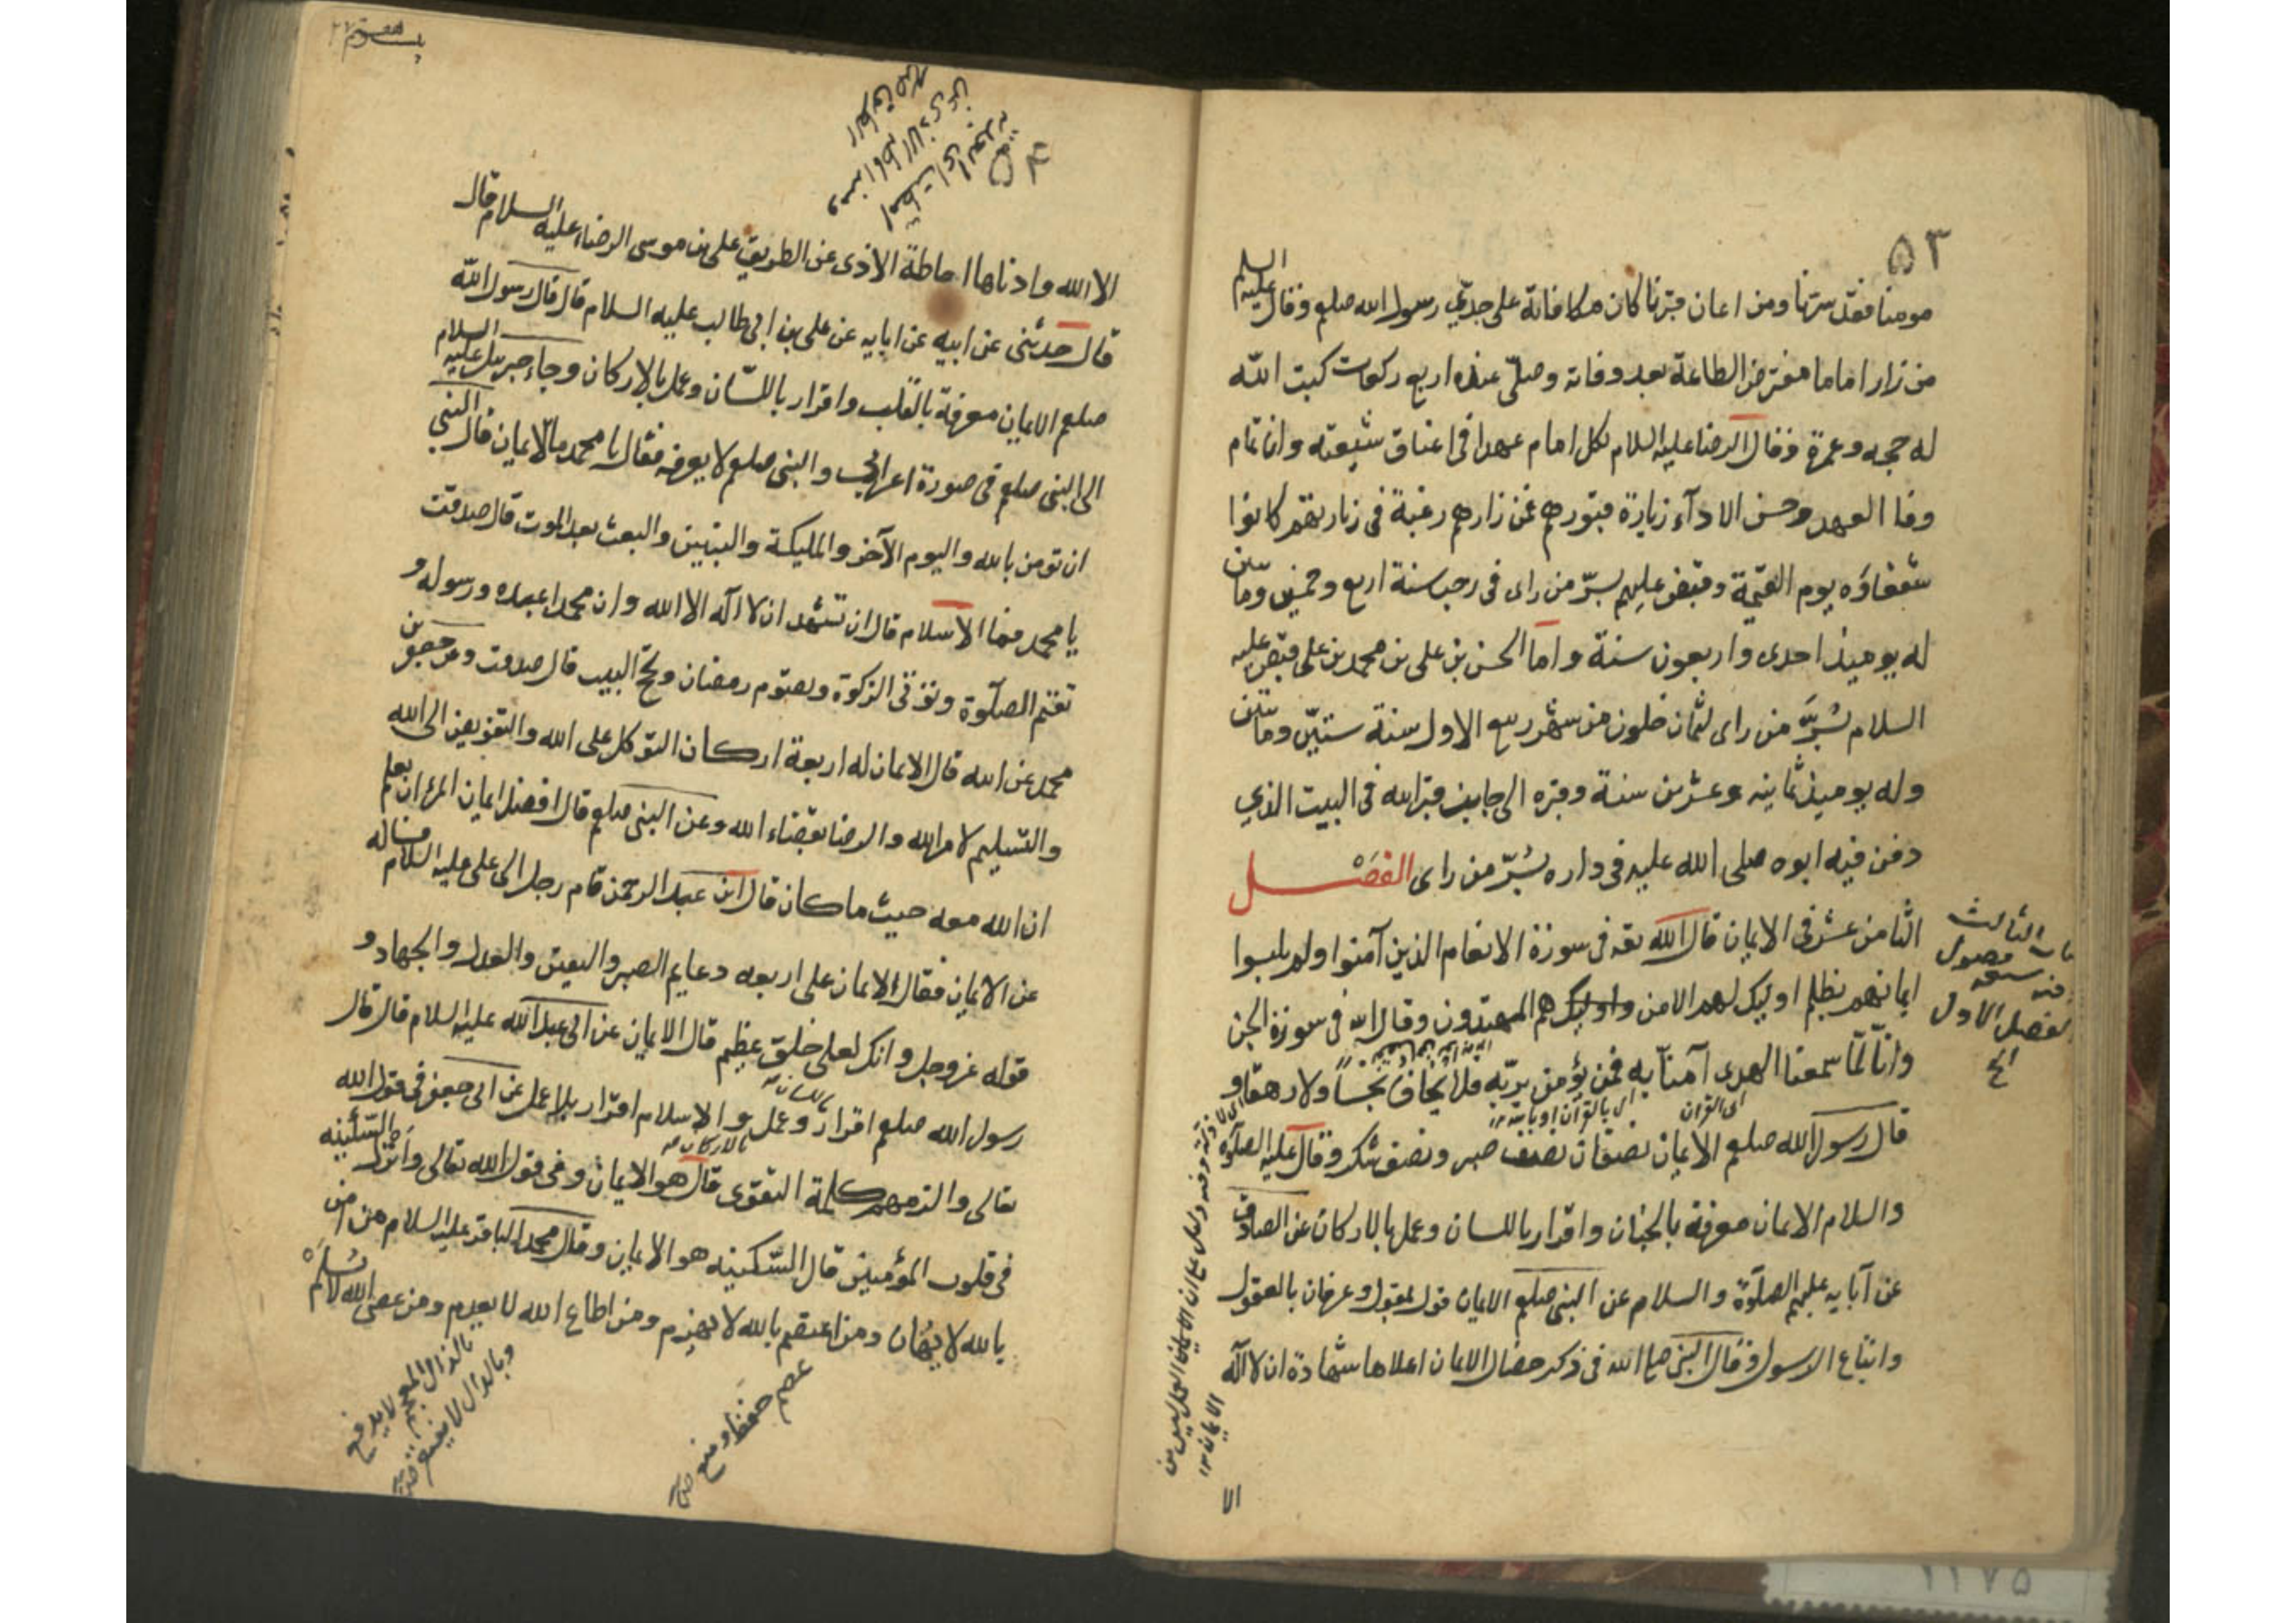 ٥٣
مومنا فقد سرنا ومن اعان فقرنا كان مكافاته على جدّي رسول الله صلعم وقال عليه السلم
من زار اماما مفترض الطاعة بعد وفاته وصلّى عنده اربع ركعات كبت الله
له حجه وعمرة وقال الرضا عليه السلام لكل امام عهدا فى اعناق شيعته وان تمام
وفا العهد وحسن الادآء زيارة قبورهم فمن زارهم رغبة فى زيارتهم كانوا
شفعاؤه يوم القيمة وقبض عليهم بسرّ من راى فى رجب سنة اربع وخمسين وماتين
له يوميذ احدى واربعون سنة واما الحسن بن على بن محمد بن على قبض عليه
السلام بسُرَّ من راى لثمان خلون من شهر ربيع الاول سنة ستيّن وماتين
وله يوميذ ثمانيه وعشرين سنة وقبره الى جانب قبر ابيه فى البيت الذي
دفن فيه ابوه صلى الله عليه فى داره بسُرّ من راى الفصَــل
الثامن عشر فى الايمان قال الله تعه فى سورة الانعام الذين آمنوا ولم يلبسوا
ايمانهم بظلم اوليك لهم الامن واوليك هم المهتدون وقال الله فى سورة الجن
وانّا لمّا سمعنا الهدى آمنّا به فمن يؤمن بربّه فلا يخاف بخساً ولا رهقا و
اى القران
اى بالقرآن او بالله
قال رسول الله صلعم الايمان نصفان نصف صبر ونصف شكر وقال عليه الصلوة
والسلام الايمان معرفة بالجنان واقرار باللسان وعمل بالاركان عن الصادق
عن آبايه عليهم الصلوة والسلام عن النبى صلعم الايمان قول مقبول وعرفان بالعقول
واتباع الرسول وقال النبى صلى الله فى ذكر خصال الايمان اعلاها شهادة ان لا اله
الا
الثالث
فصول
الفصل الاول
الخ
الا الله وادناها اماطة الاذى عن الطريق على بن موسى الرضا عليه السلام قال
قال حدثنى عن ابيه عن ابايه عن على بن ابى طالب عليه السلام قال قال رسول الله
صلعم الايمان معرفة بالقلب واقرار باللسّان وعمل بالاركان وجآء جبريل عليه السلام
الى النبى صلعم فى صورة اعرابى والنبى صلعم لا يعرفه فقال يا محمد ما الايمان قال النبى
ان تومن بالله واليوم الآخر والمليكة والنبيين والبعث بعد الموت قال صدقت
يا محمد فما الاسلام قال ان تشهد ان لا اله الا الله وان محمدا عبده ورسوله و
تقيم الصلوة وتوتى الزكوة وتصوم رمضان وتحج البيت قال صدقت وعن جعفر بن
محمد عن ابيه قال الايمان له اربعة اركان التوكل على الله والتفويض الى الله
والتسليم لامر الله والرضا بقضاء الله وعن النبى صلعم قال افضل ايمان المرء ان يعلم
ان الله معه حيث ما كان قال ابن عبد الرحمن قام رجل الى على عليه السلام فساله
عن الايمان فقال الايمان على اربعه دعايم الصبر واليقين والعدل والجهاد و
قوله عز وجل وانك لعلى خلق عظيم قال الايمان عن ابى عبد الله عليه السلام قال قال
رسول الله صلعم اقرار وعمل والاسلام اقرار بلا عمل عن ابى جعفر فى قول الله
تعالى والزمهم كلمة التقوى قال هو الايمان وفى قول الله تعالى وانزل السكينه
فى قلوب المؤمنين قال السّكينه هو الايمان وقال محمد الباقر عليه السلام من آمن
بالله لا يهان ومن اعتصم بالله لا يهزم ومن اطاع الله لا يعدم ومن عصى الله لا يسلم
بالذال المعجم لا يدفع
عصم حفظ و منع